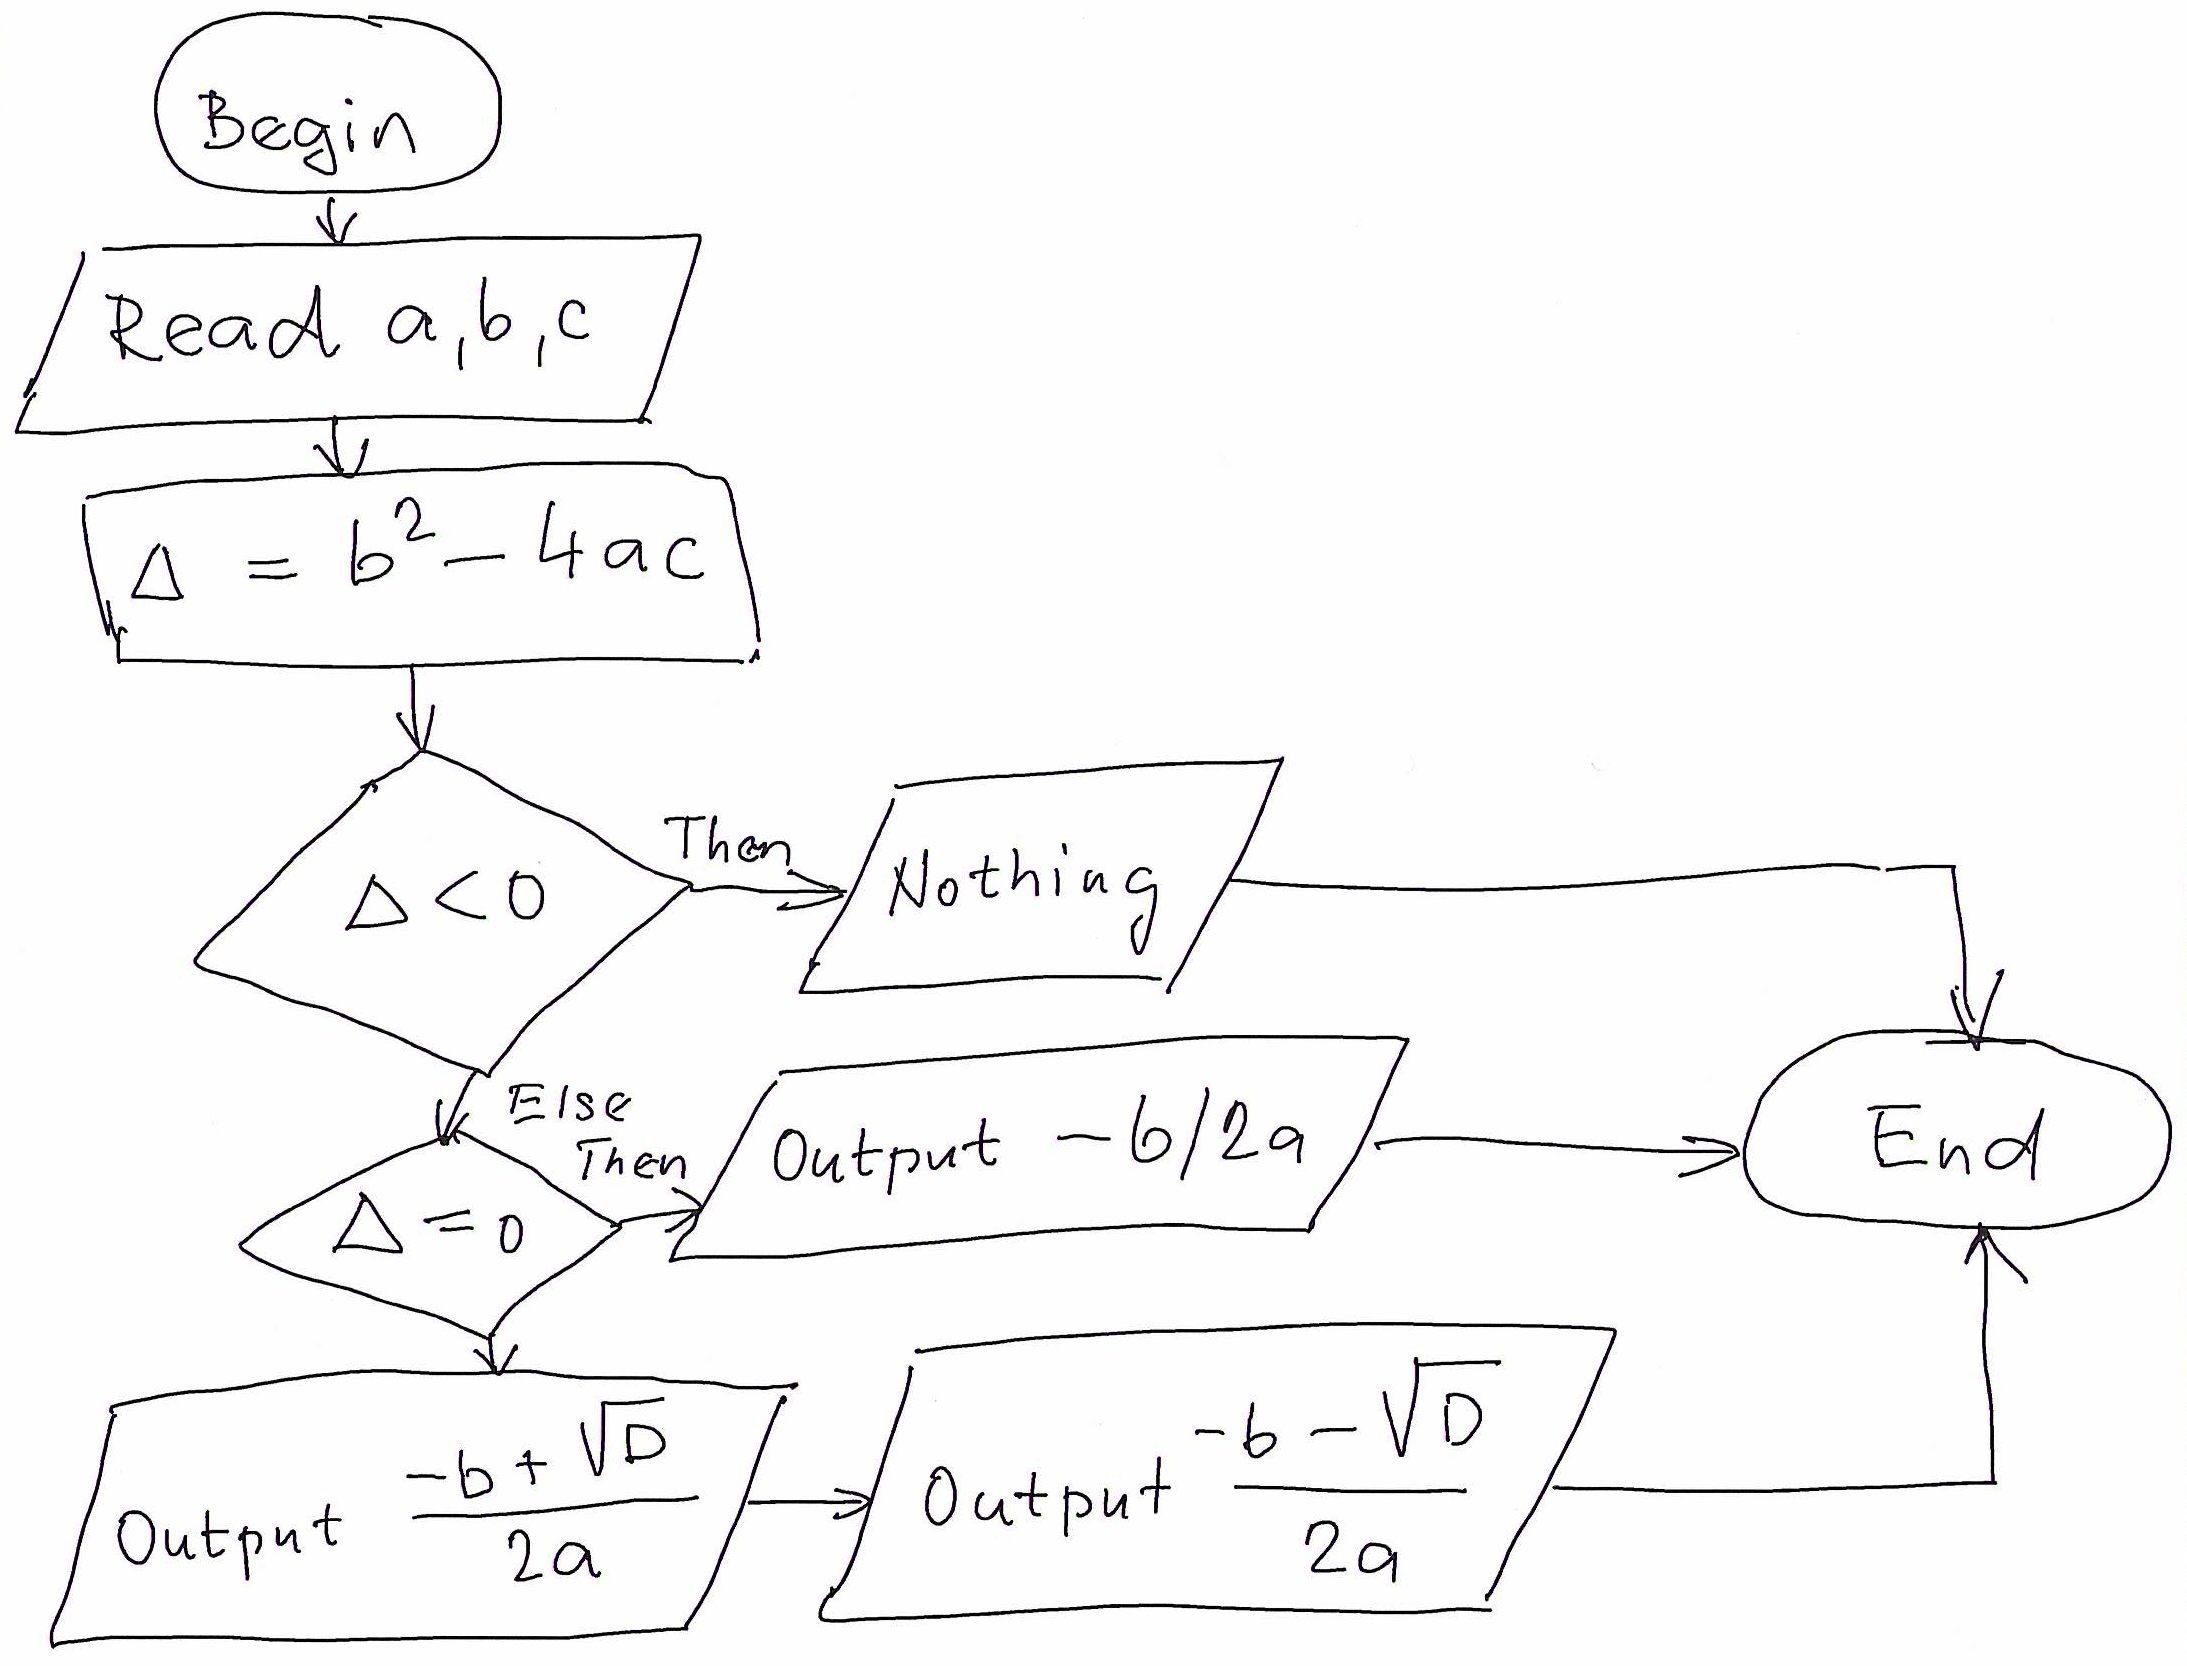 Begin
Read a,b,c
Δ = b² - 4ac
Δ < 0
Then
Nothing
Else
Then
Δ = 0
Output -b/2a
End
Output (-b + √D)/2a
Output (-b - √D)/2a